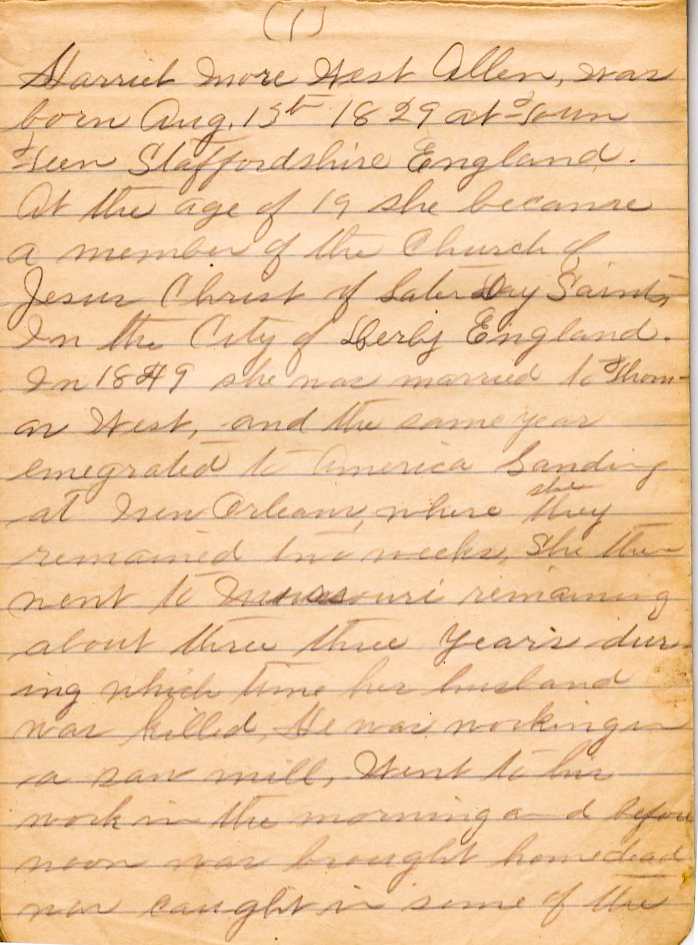 (1)
Harriet More West Allen, was
born Aug. 13th 1829 at Toun
Teen Staffordshire England.
At the age of 19 she became
a member of the Church of
Jesus Christ of Later Day Saints,
In the City of Derby England.
In 1849 she was married to Thom-
as West, and the same year
emegrated to America Landing
at New Orleans, where they
she
remained two weeks, She then
went to Missouri remaining
about three three Years dur-
ing which time her husband
was killed, He was working in
a saw mill, Went to his
work in the morning and before
noon was brought home dead
was caught in some of the